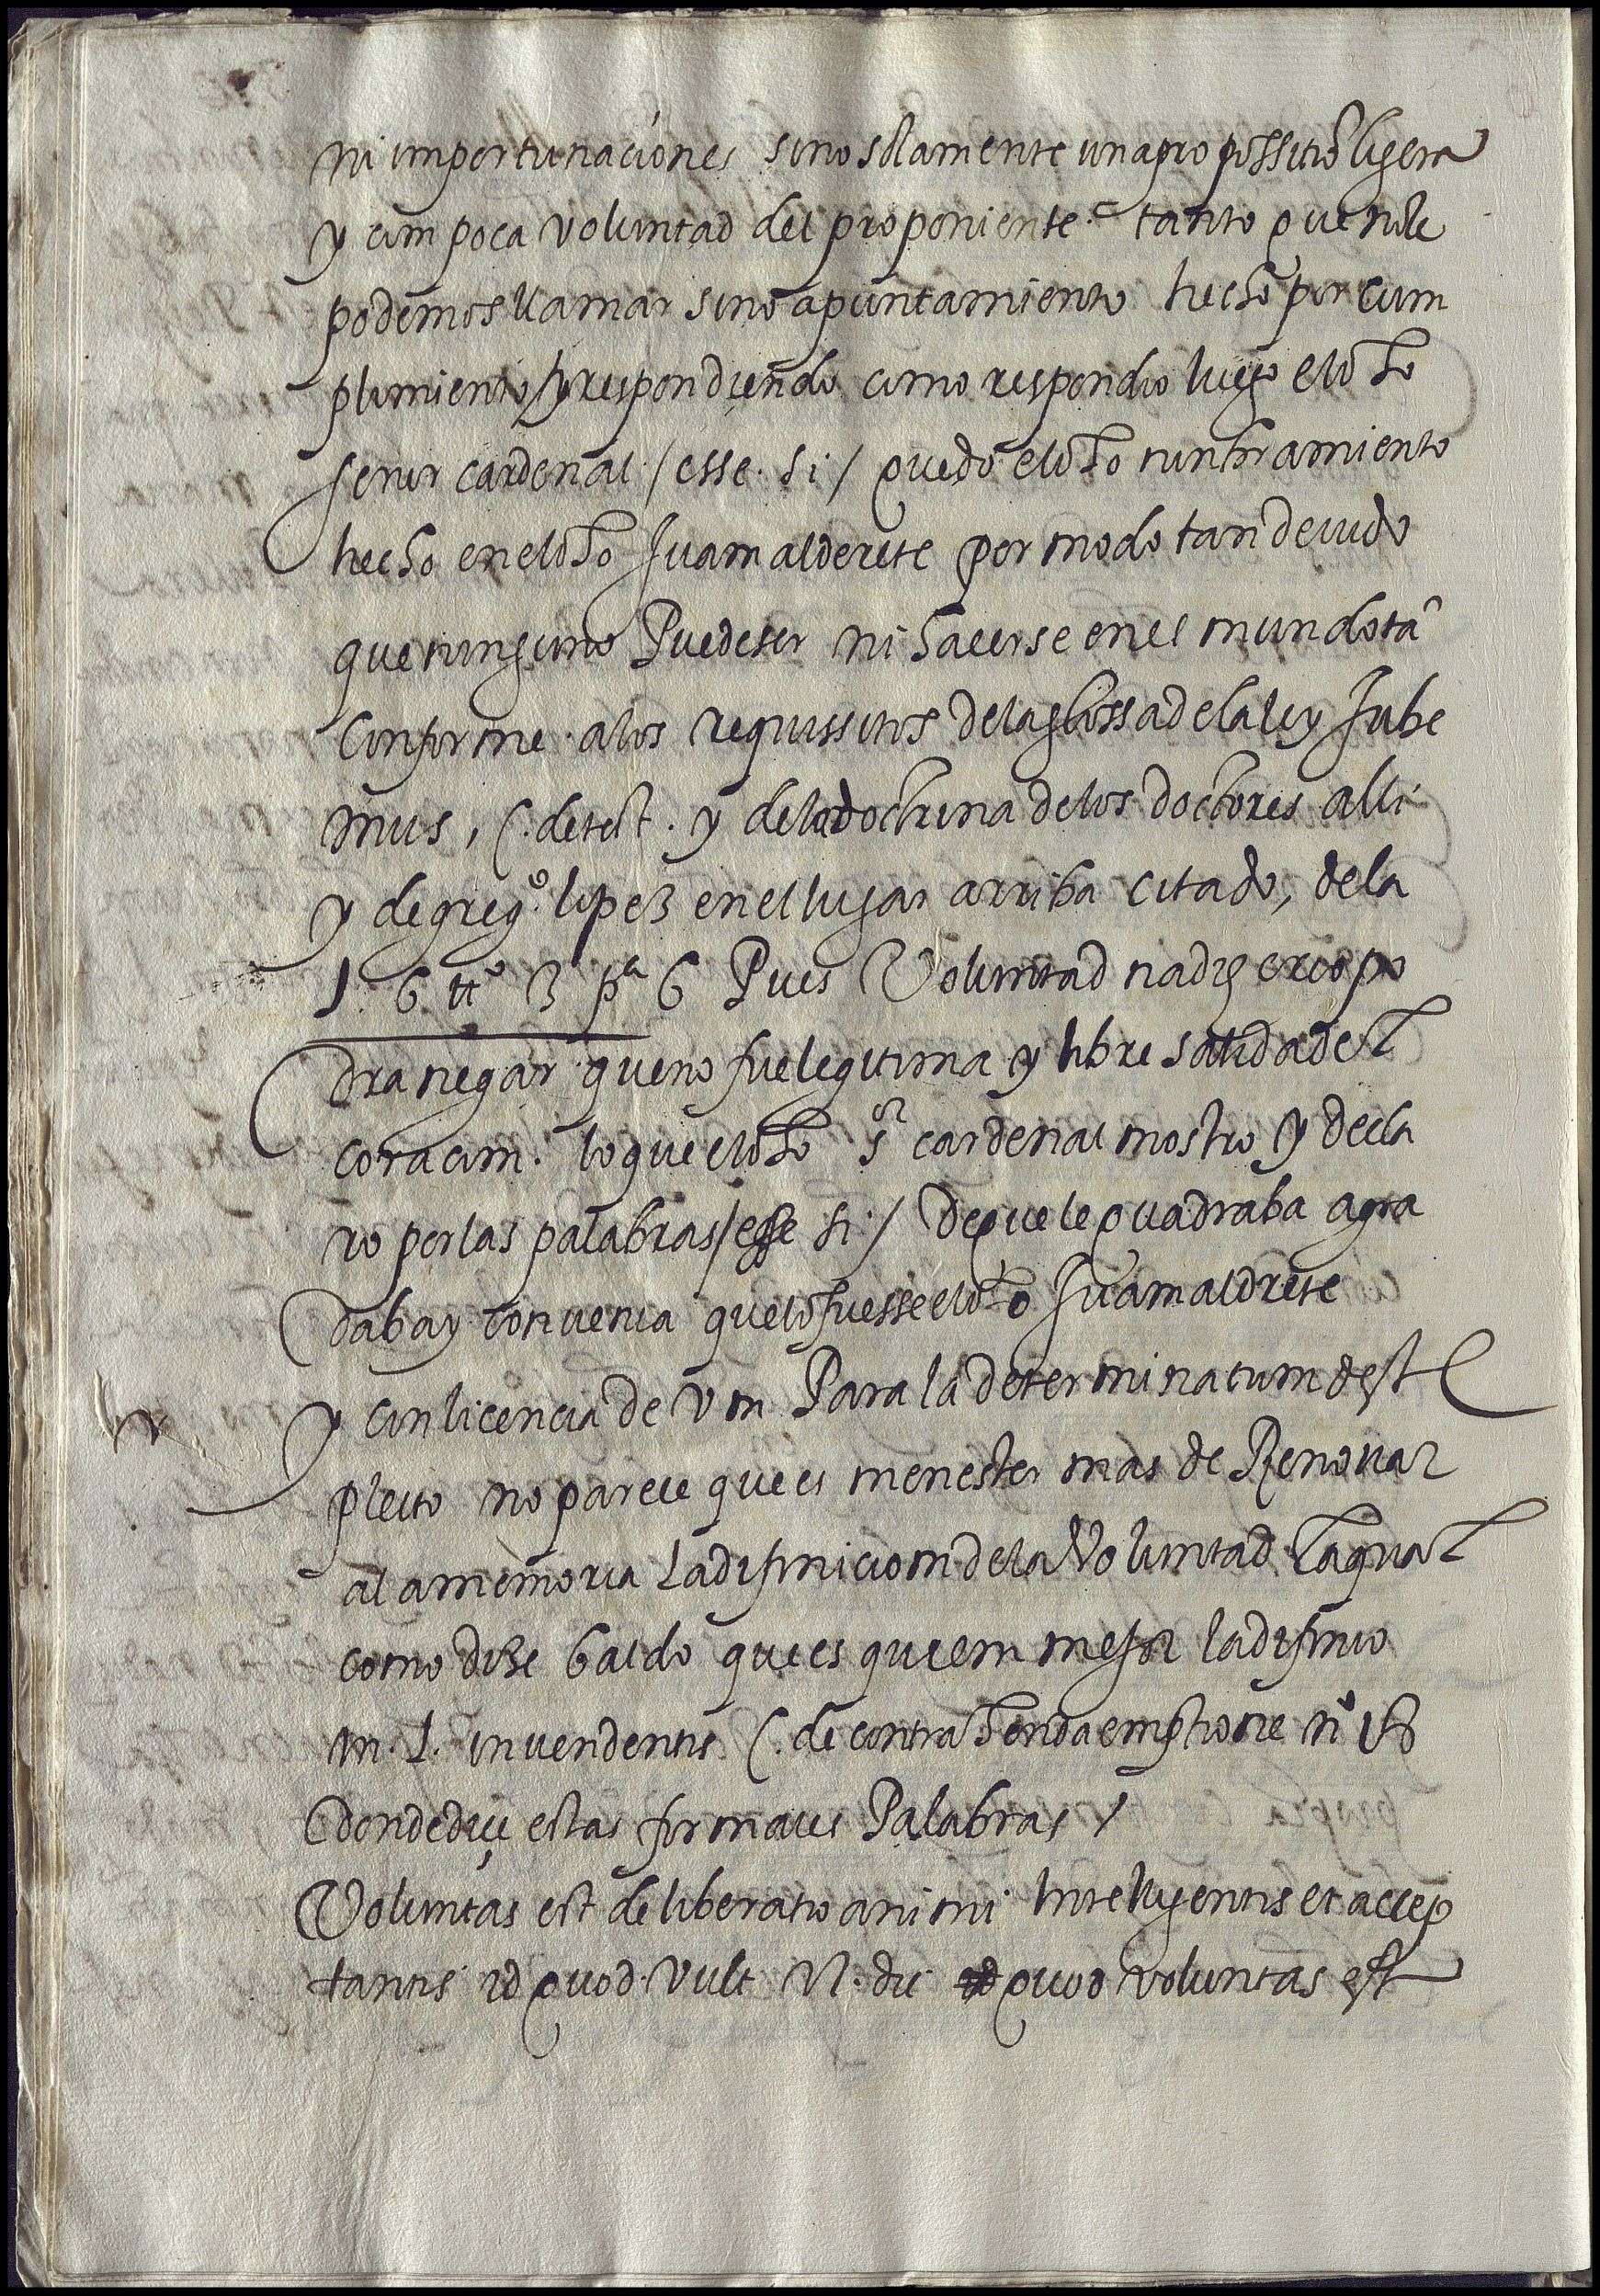 ni importunaciones sino solamente una propossiciõ ligera
y con poca voluntad del proponiente. tanto que no le
podemos llamar sino apuntamiento hecho por cum
plimiento / y respondiendo como respondio luego el dho
señor cardenal / esse. si / quedo el dho nonbramiento
hecho en el dho Juan alderete por modo tan devido
que ninguno Puede ser ni hacerse en el mundo tã
conforme a los requissitos de la glossa de la ley Jube
mus, C. de test. y de la doctrina de los doctores alli
y de gregº. lopez en el lugar arriba citado, de la
l. 6 ttº 3 pª 6 Pues Voluntad nadie creo po
dra negar que no fue legitima y libre salida del
coracon. lo que el dho sr cardenal mostro y decla
ro por las palabras / esse si / de que le quadraba agra
daba y convenia que lo fuesse el dho Juan aldrete
y con licencia de Vm Para la determinacion deste
pleito no parece que es menester mas de Renovar
a la memoria La difinicion de la Voluntad La qual
como dize baldo que es quien mejor la difinio
in. l. in vendentis C. de contrahenda emptione nº 18
donde dice estas formales Palabras /
Voluntas est deliberatio animi Intelligentis et accep
tantis id quod vult Vl. dic quod voluntas est